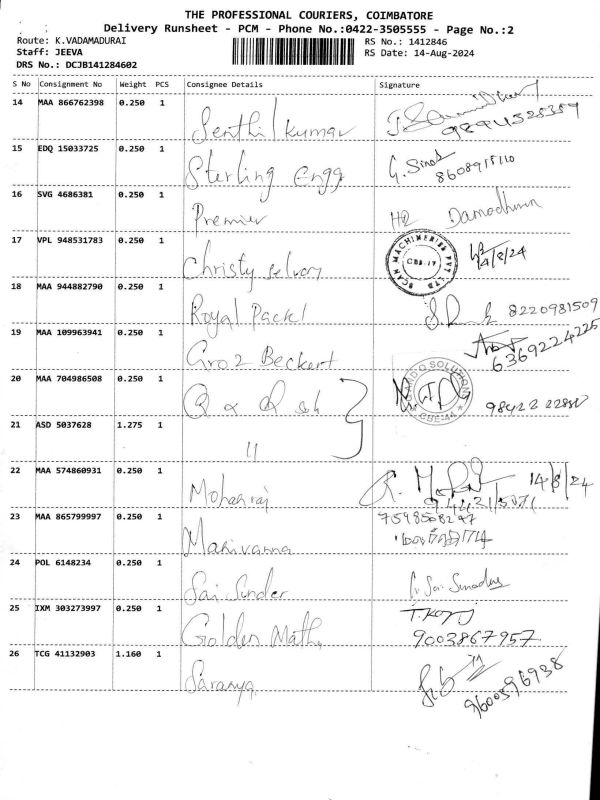 THE PROFESSIONAL COURIERS, COIMBATORE
Delivery Runsheet - PCM - Phone No.:0422-3505555 - Page No.:2
Route: K.VADAMADURAI RS No.: 1412846
Staff: JEEVA RS Date: 14-Aug-2024
DRS No.: DCJB141284602
S No Consignment No Weight PCS Consignee Details Signature
14 MAA 866762398 0.250 1 Senthil kumar
15 EDQ 15033725 0.250 1 Sterling Engg
16 SVG 4686381 0.250 1 Premier Damodharan
17 VPL 948531783 0.250 1 Christy selvam 14/8/24
18 MAA 944882790 0.250 1 Royal Pack 8220981509
19 MAA 109963941 0.250 1 Groz Beckert 6369224225
20 MAA 704986508 0.250 1
21 ASD 5037628 1.275 1 11
22 MAA 574860931 0.250 1 Mohanraj 14/8/24
23 MAA 865799997 0.250 1 Marivanna
24 POL 6148234 0.250 1 Sai Sunder
25 IXM 303273997 0.250 1 Golden Maths 9003867957
26 TCG 41132903 1.160 1 Saranya 9600596938